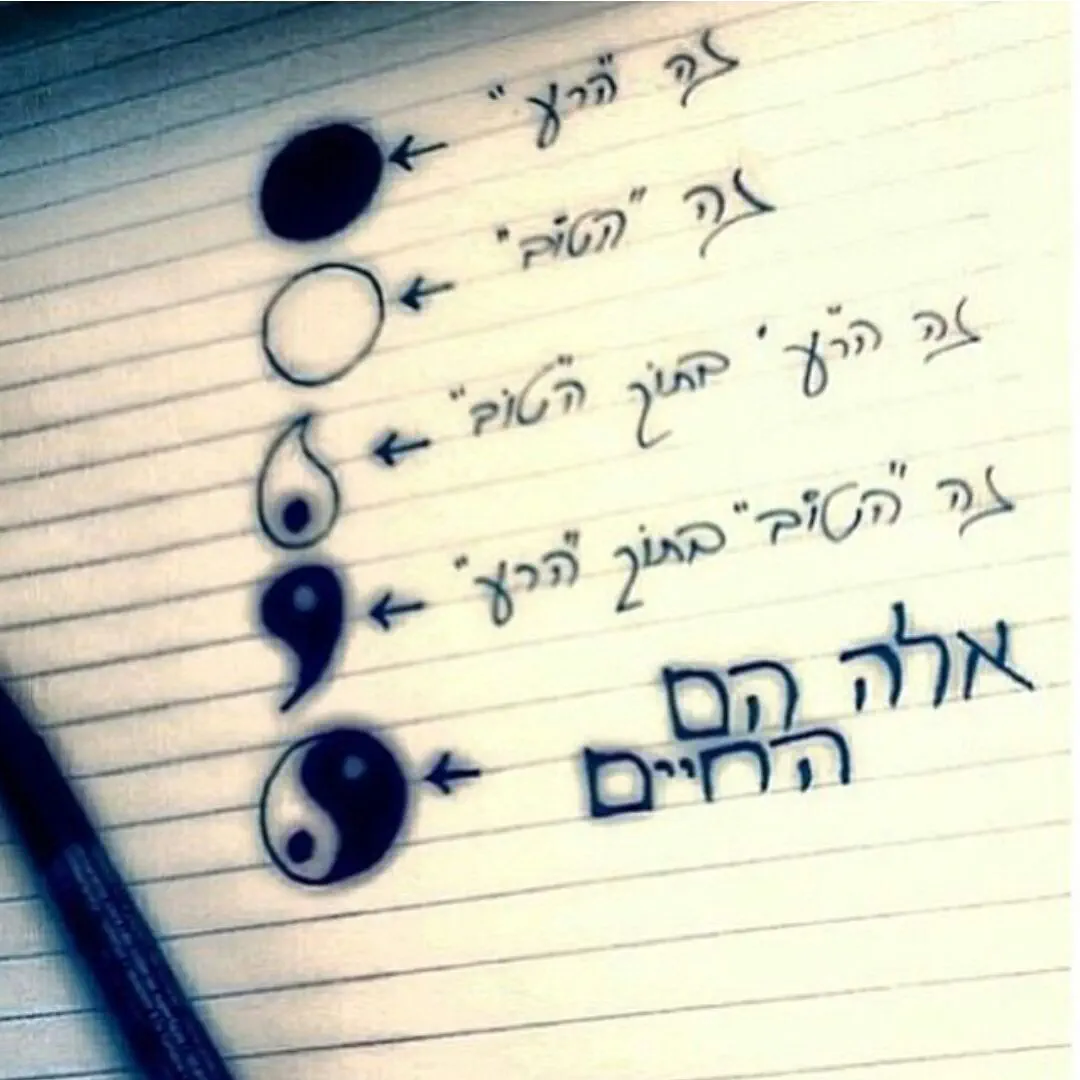 זה "הרע"
זה "הטוב"
זה "הרע" בתוך "הטוב"
זה "הטוב" בתוך "הרע"
אלה הם
החיים